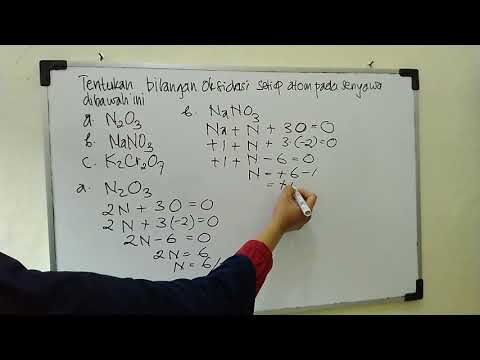 Tentukan bilangan Oksidasi setiap atom pada senyawa
dibawah ini
a. N2O3
b. NaNO3
c. K2Cr2O7
a. N2O3
2N + 3O = 0
2N + 3(-2) = 0
2N - 6 = 0
2N = 6
N = 6/
b. NaNO3
Na + N + 3O = 0
+1 + N + 3·(-2) = 0
+1 + N - 6 = 0
N = +6 - 1
= +